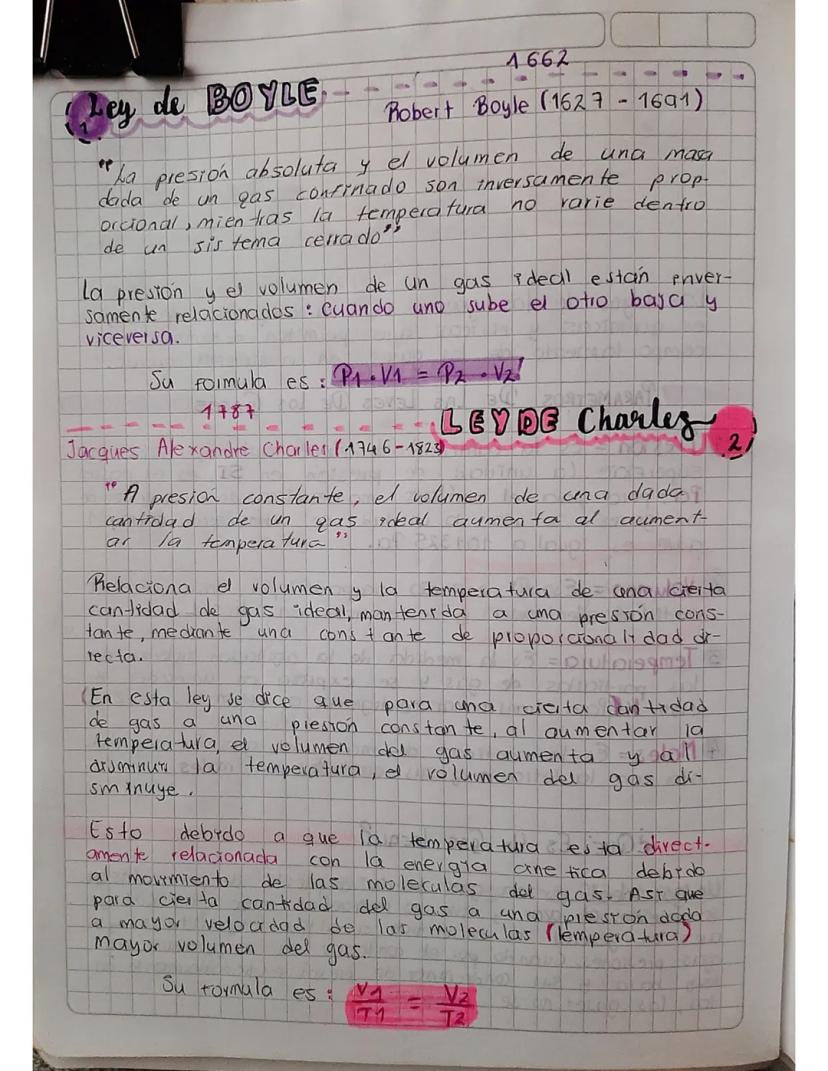 1662
Ley de BOYLE
1
Robert Boyle (1627 - 1691)
"La presión absoluta y el volumen de una masa
dada de un gas confinado son inversamente prop-
orcional, mientras la temperatura no varie dentro
de un sistema cerrado"
La presión y el volumen de un gas ideal están inver-
samente relacionados: Cuando uno sube el otro baja y
viceversa.
Su formula es: P1 . V1 = P2 . V2
1787
LEY DE Charles
2
Jacques Alexandre Charles (1746-1823)
"A presion constante, el volumen de una dada
cantidad de un gas ideal aumenta al aument-
ar la temperatura"
Relaciona el volumen y la temperatura de una cierta
cantidad de gas ideal, mantenida a una presión cons-
tante, mediante una constante de proporcionalidad di-
recta.
(En esta ley se dice que para una cierta cantidad
de gas a una presión constante, al aumentar la
temperatura, el volumen del gas aumenta y al
disminuir la temperatura, el volumen del gas di-
sminuye.
Esto debido a que la temperatura esta direct-
amente relacionada con la energía cinetica debido
al movimiento de las moleculas del gas. Así que
para cierta cantidad del gas a una presión dada
a mayor velocidad de las moleculas (temperatura)
mayor volumen del gas.
Su formula es: V1/T1 = V2/T2